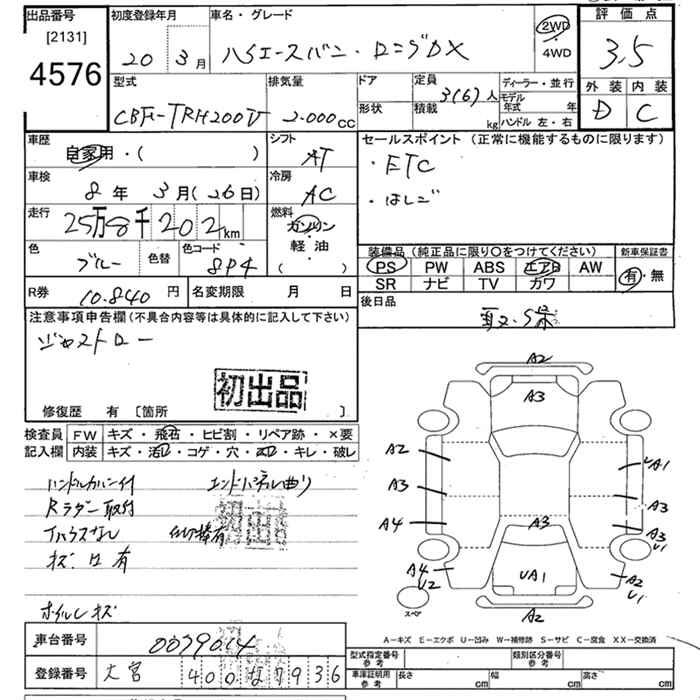 出品番号
[2131]
4576
初度登録年月
20年 3月
車名・グレード
ハイエースバン・ロングDX
2WD
・
4WD
評価点
3.5
外装 内装
D C
型式
CBF-TRH200V
排気量
2.000cc
ドア
形状
定員
3(6)人
積載
kg
ディーラー・並行
モデル年式 年
ハンドル 左・右
車歴
自家用・( )
シフト
AT
セールスポイント (正常に機能するものに限ります)
・ETC
・はしご
車検
8年 3月(26日)
冷房
AC
走行
25万8千202km
燃料
ガソリン
・
軽油
( )
色
ブルー
色替
色コード
8P4
装備品(純正品に限り〇をつけてください)
PS PW ABS エアB AW
SR ナビ TV カワ
新車保証書
有・無
R券
10.840円
名変期限 月 日
後日品
取・保
注意事項申告欄(不具合内容等は具体的に記入して下さい)
ジャストロー
初出品
修復歴 有 [箇所 ]
検査員記入欄
FW キズ・飛石・ヒビ割・リペア跡・×要
内装 キズ・汚レ・コゲ・穴・スレ・キレ・破レ
ハンドルカバー付 エンドパネル曲り
Rラダー取付
初出品
キズ・凹有
ホイルキズ
A2
A3
A2
A3
A4
A3
UA1
A3
A3
U1
A4
U2
UA1
A2
U1
A2
スペア
A-キズ E-エクボ U-凹み W-補修跡 S-サビ C-腐食 XX-交換済
車台番号
0079614
型式指定番号 参考
類別区分番号 参考
登録番号
大宮 400 な 7936
車庫証明用 参考
長さ cm 幅 cm 高さ cm